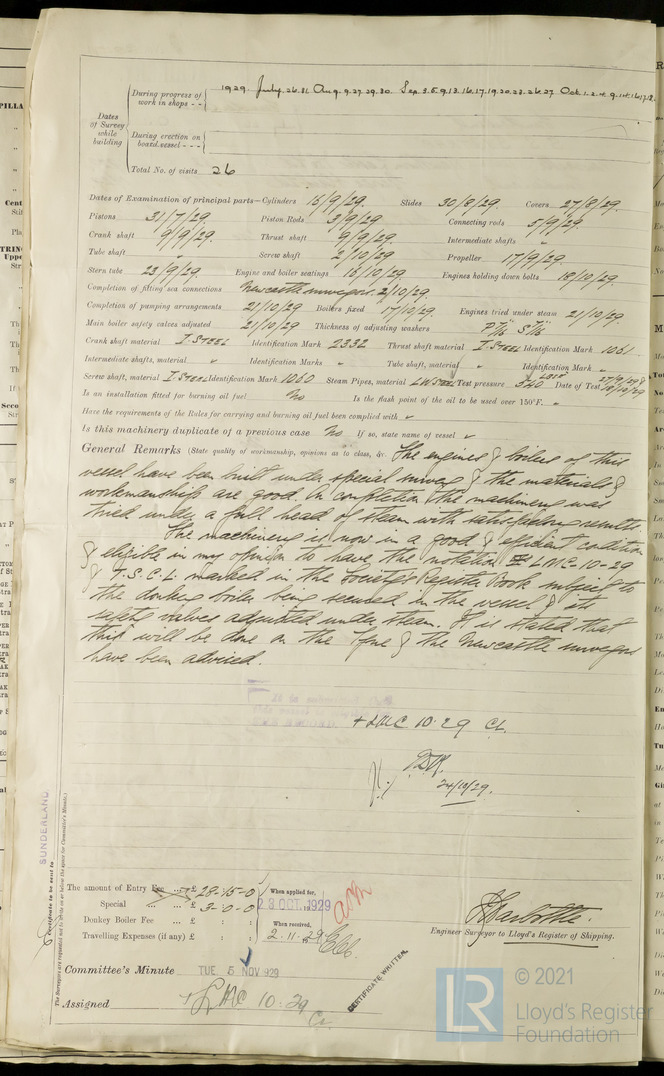 During progress of work in shops - - 1929 July 26.31 Aug 9.27.29.30 Sep 3.5.9.13.16.17.19.20.23.26.27 Oct 1.2.
Dates of Survey while building
During erection on board vessel - - -
Total No. of visits 26
Dates of Examination of principal parts—Cylinders 16/9/29. Slides 30/8/29. Covers 27/8/29.
Pistons 31/7/29. Piston Rods 3/9/29. Connecting rods 5/9/29.
Crank shaft 9/9/29. Thrust shaft 9/9/29. Intermediate shafts -
Tube shaft - Screw shaft 2/10/29. Propeller 17/9/29.
Stern tube 23/9/29. Engine and boiler seatings 16/10/29. Engines holding down bolts 18/10/29.
Completion of fitting sea connections Newcastle surveyors. 2/10/29.
Completion of pumping arrangements 21/10/29 Boilers fixed 17/10/29. Engines tried under steam 21/10/29
Main boiler safety valves adjusted 21/10/29 Thickness of adjusting washers
Crank shaft material I. STEEL Identification Mark 2332 Thrust shaft material I. STEEL Identification Mark 1061
Intermediate shafts, material ✓ Identification Marks - Tube shaft, material Identification Mark -
Screw shaft, material I STEEL Identification Mark 1060 Steam Pipes, material LW STEEL Test pressure 540 Date of Test
Is an installation fitted for burning oil fuel No Is the flash point of the oil to be used over 150°F. -
Have the requirements of the Rules for carrying and burning oil fuel been complied with ✓
Is this machinery duplicate of a previous case No If so, state name of vessel ✓
General Remarks (State quality of workmanship, opinions as to class, &c. The engines & boilers of this
vessel have been built under special survey & the materials &
workmanship are good. On completion the machinery was
tried under a full head of steam with satisfactory results.
The machinery is now in a good & efficient condition
& eligible in my opinion to have the notation LMC. 10-29
& T.S.C.L. marked in the Society's Register Book subject to
the donkey boiler being secured in the vessel & its
safety valves adjusted under steam. It is stated that
this will be done on the Tyne & the Newcastle surveyors
have been advised.
+ LMC 10.29 CL.
24/10/29.
SUNDERLAND
Certificate to be sent to
The Surveyors are requested not to write on or below the space for Committee's Minute.
The amount of Entry Fee ... £ 28-15-0
Special ... £ 3-0-0
Donkey Boiler Fee ... £ : :
Travelling Expenses (if any) £ : :
When applied for,
28 OCT 1929
When received,
2.11.29
Engineer Surveyor to Lloyd's Register of Shipping.
Committee's Minute TUE 5 NOV 1929
Assigned + LMC 10.29
CL
CERTIFICATE WRITTEN.
LR
© 2021
Lloyd's Register
Foundation